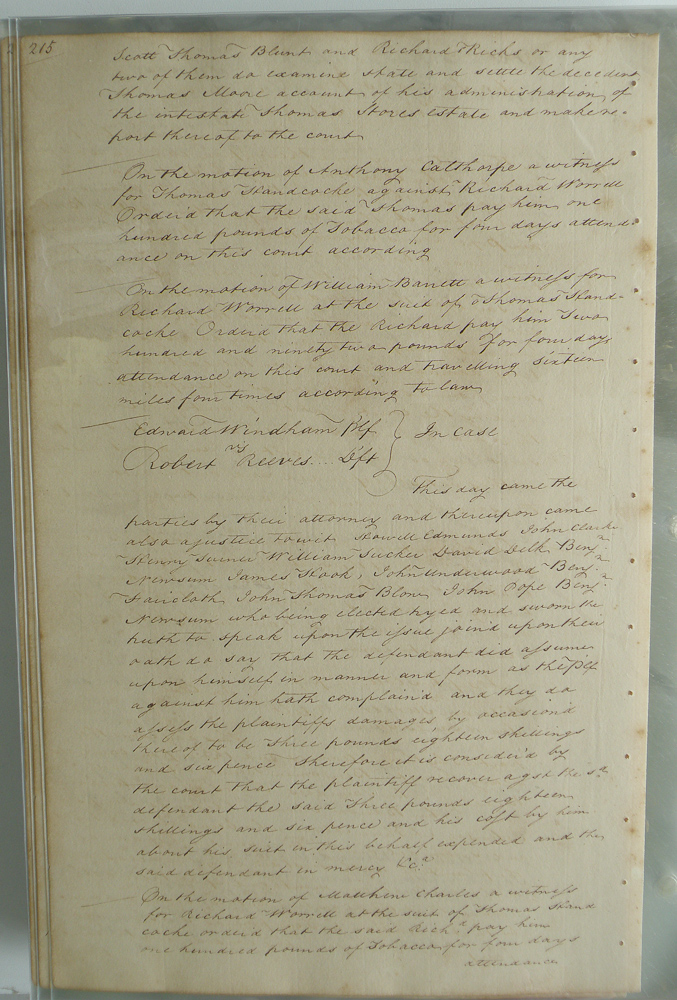 215
Scott Thomas Blunt and Richard Ricks or any
two of them do examine state and settle the decedent
Thomas Moore account of his administration of
the intestate Thomas Stores estate and make re-
port thereof to the court
On the motion of Anthony Calthorpe a witness
for Thomas Handcocke against Richard Worrell
Order'd that the said Thomas pay him one
hundred pounds of Tobacco for four days attend-
ance on this court according
On the motion of William Barrett a witness for
Richard Worrell at the suit of Thomas Hand-
cocke Orderd that the Richard pay him Two
hundred and ninety two pounds for four days
attendance on this court and travelling sixteen
miles four times according to law
Edward Windham Plf
vs
In Case
Robert Reeves.... Dft
This day came the
parties by their attorney and thereupon came
also a justice to wit Howell Edmunds John Clarke
Henry Turner William Tucker David Delk Benja
Newsum James Hook, John Underwood Benja
Faircloth John Thomas Blow John Pope Benja
Newsum who being elected tryed and sworn the
truth to speak upon the issue joind upon their
oath do say that the defendant did assume
upon himself in manner and form as the Plf
against him hath complain'd and they do
assess the plaintiffs damages by occasion'd
thereof to be Three pounds eighteen shillings
and six pence Therefore it is consider'd by
the court that the plaintiff recover agst the sd
defendant the said Three pounds eighteen
shillings and six pence and his cost by him
about his suit in this behalf expended and the
said defendant in mercy &ca
On the motion of Matthew Charles a witness
for Richard Worrell at the suit of Thomas Hand
cocke order'd that the said Richd pay him
one hundred pounds of Tobacco for four days
attendance